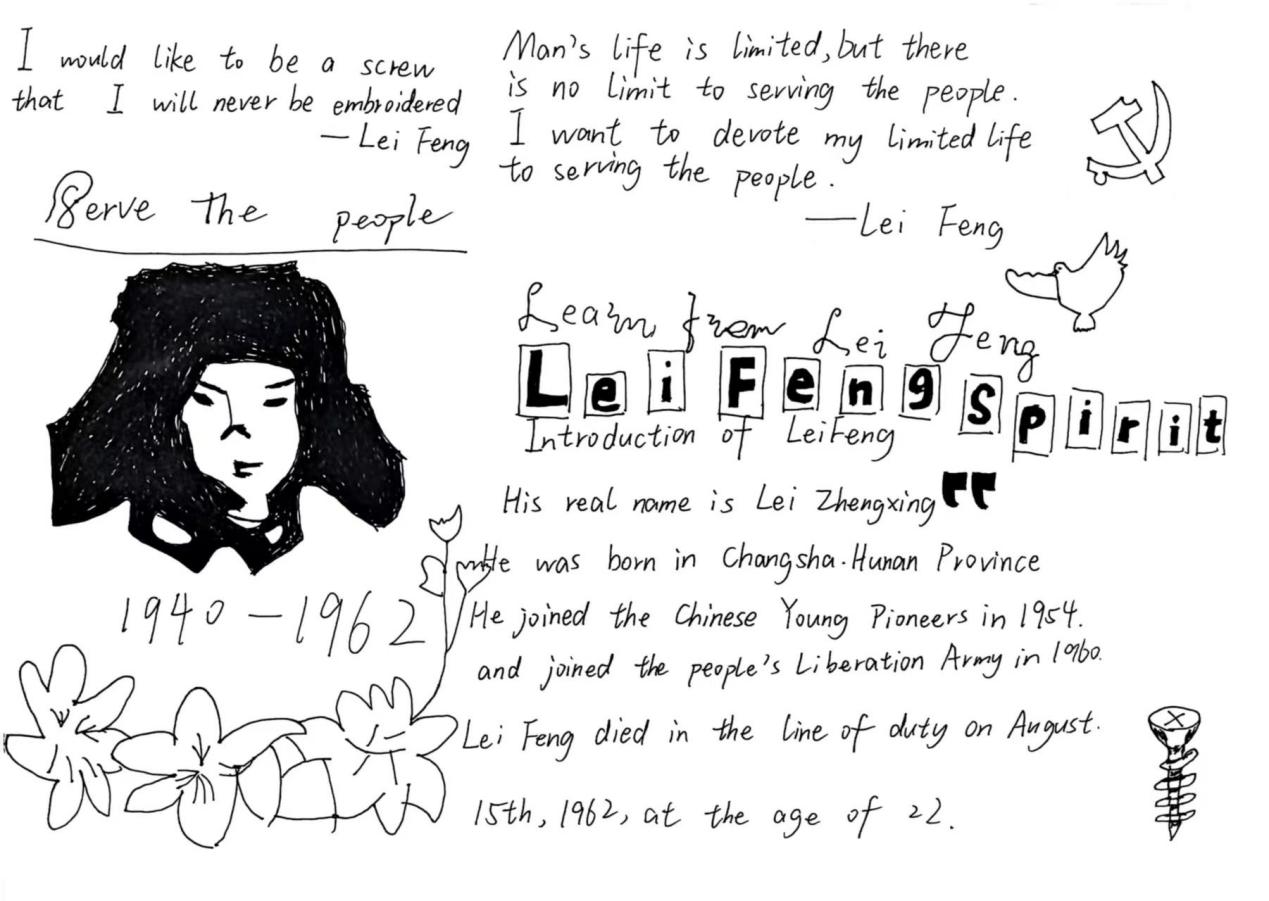 I would like to be a screw
that I will never be embroidered
—Lei Feng
Serve the people
Man's life is limited, but there
is no limit to serving the people.
I want to devote my limited life
to serving the people.
—Lei Feng
Learn from Lei Feng
Lei Feng Spirit
Introduction of LeiFeng
His real name is Lei Zhengxing
He was born in Changsha. Hunan Province
He joined the Chinese Young Pioneers in 1954.
and joined the people's Liberation Army in 1960.
Lei Feng died in the line of duty on August.
15th, 1962, at the age of 22.
1940-1962